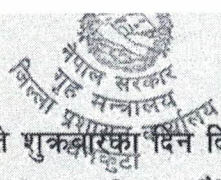 नेपाल सरकार
गृह मन्त्रालय
जिल्ला प्रशासन कार्यालय
शुक्रबारका दिन